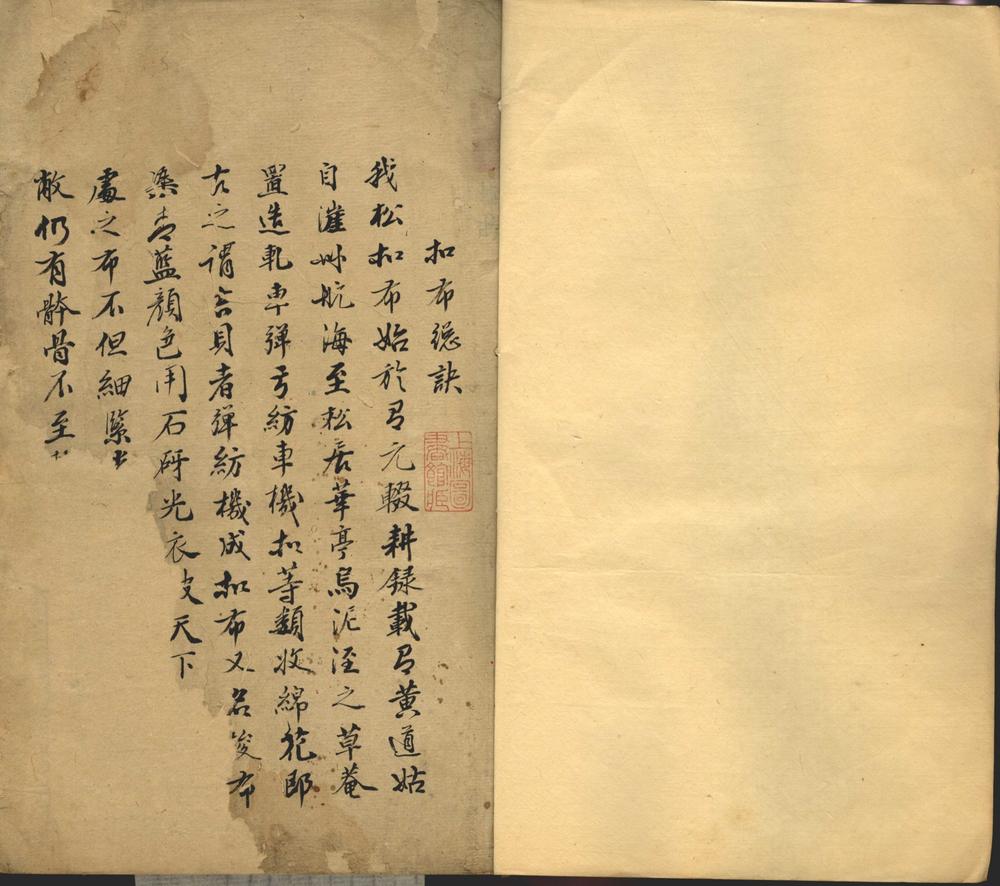 扣布總訣
我松扣布始於有元輟耕録載有黃道姑
自漼州航海至松居華亭烏泥涇之草菴
置造軋車彈弓紡車機扣等類收綿花即
古之謂吉貝者彈紡機成扣布又名浚布
染青藍顏色用石砑光衣皮天下
處之布不但細緊
敝仍有骵骨不至
上海圖
書館藏